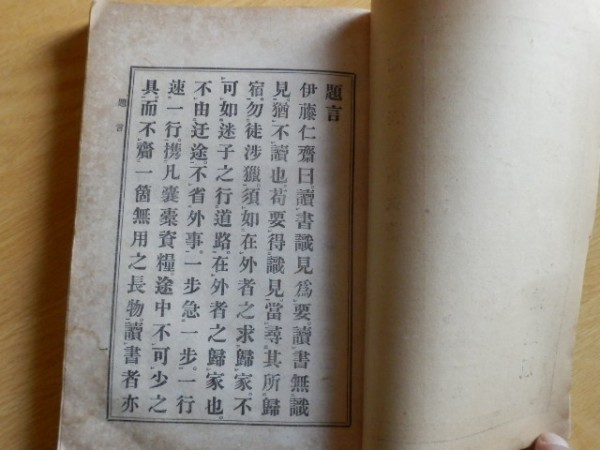 題言
伊藤仁齋曰讀書識見爲要讀書無識
見猶不讀也苟要得識見當尋其所歸
宿勿徒涉獵須如在外者之求歸家不
可如迷子之行道路在外者之歸家也
不由迂途不省外事一步急一步一行
速一行攜凡囊橐資糧途中不可少之
具而不齎一箇無用之長物讀書者亦
題言